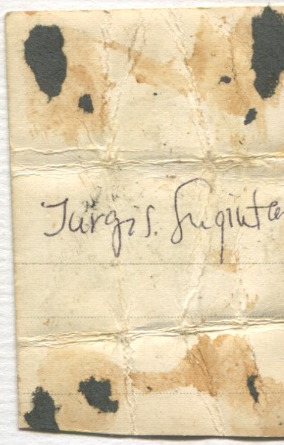 Jurgis. Suginta